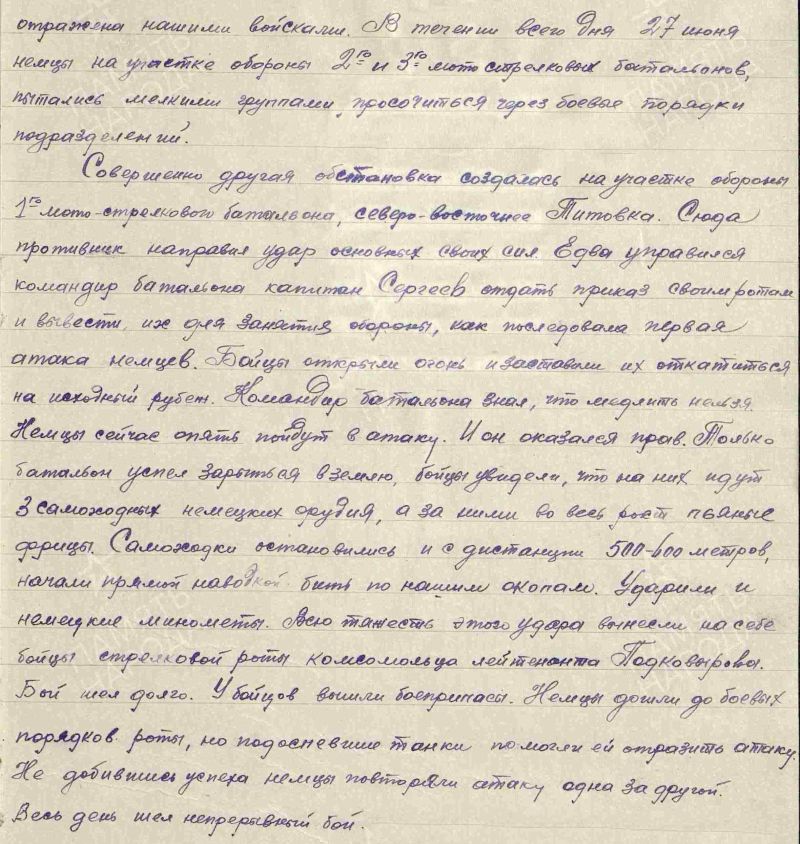 отражена нашими войсками. В течении всего дня 27 июня
немцы на участке обороны 2го и 3го мотострелковых батальонов,
пытались мелкими группами просочиться через боевые порядки
подразделений.
Совершенно другая обстановка создалась на участке обороны
1го мото-стрелкового батальона, северо-восточнее Титовка. Сюда
противник направил удар основных своих сил. Едва управился
командир батальона капитан Сергеев отдать приказ своим ротам
и вывести их для занятия обороны, как последовала первая
атака немцев. Бойцы открыли огонь и заставили их откатиться
на исходный рубеж. Командир батальона знал, что медлить нельзя.
Немцы сейчас опять пойдут в атаку. И он оказался прав. Только
батальон успел зарыться в землю, бойцы увидели, что на них идут
3 самоходных немецких орудия, а за ними во весь рост пьяные
фрицы. Самоходки остановились и с дистанции 500-600 метров,
начали прямой наводкой бить по нашим окопам. Ударили и
немецкие минометы. Всю тяжесть этого удара вынесли на себе
бойцы стрелковой роты комсомольца лейтенанта Подковырова.
Бой шел долго. У бойцов вышли боеприпасы. Немцы дошли до боевых
порядков роты, но подоспевшие танки помогли ей отразить атаку.
Не добившись успеха немцы повторяли атаку одна за другой.
Весь день шел непрерывный бой.